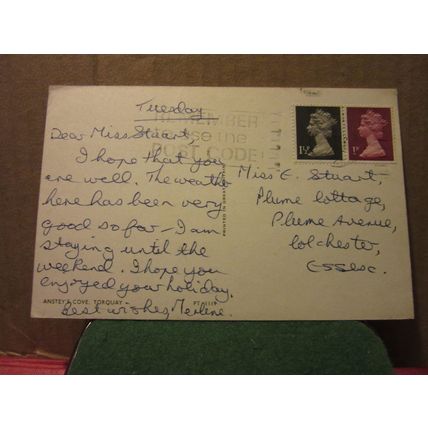 Tuesday
REMEMBER
use the
POST CODE
1½P
1P
Dear Miss Stuart,
I hope that you
are well. The weather
here has been very
good so far - I am
staying until the
weekend. I hope you
enjoyed your holiday.
Best wishes, Merlene.
Miss E. Stuart,
Plume Cottage,
Plume Avenue,
Colchester,
Essex.
ANSTEY'S COVE, TORQUAY